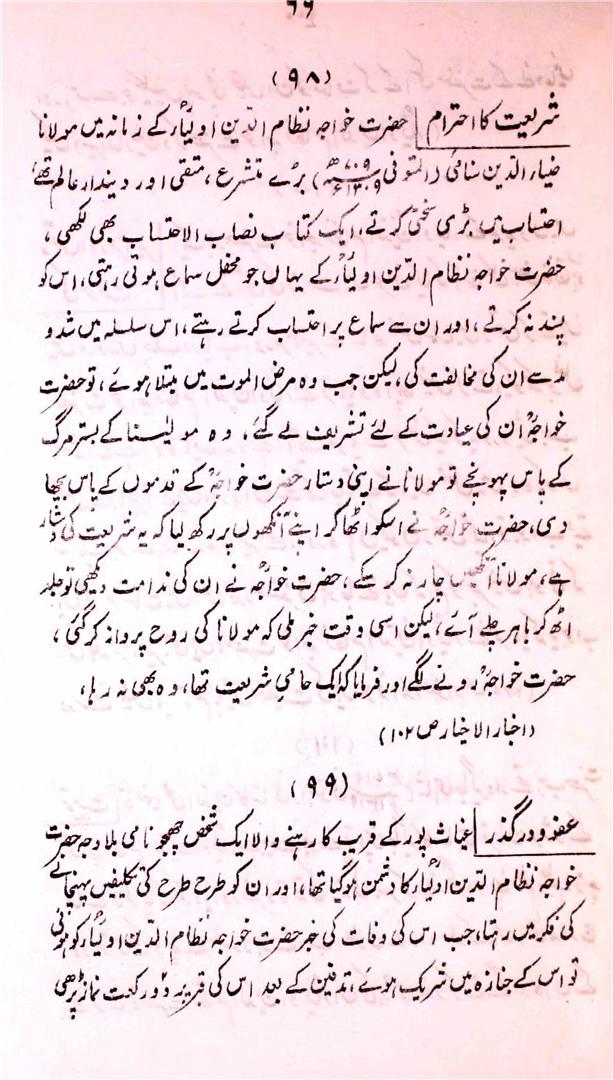 ۶۶
(۹۸)
شریعت کا احترام حضرت خواجہ نظام الدین اولیاؒر کے زمانہ میں مولانا
ضیار الدین سنامیؒ (المتوفی ۷۰۹ھ ۱۳۰۹ء) بڑے متشرع، متقی اور دیندار عالم تھے،
احتساب میں بڑی سختی کرتے، ایک کتاب نصاب الاحتساب بھی لکھی،
حضرت خواجہ نظام الدین اولیاؒر کے یہاں جو محفل سماع ہوتی رہتی، اس کو
پسند نہ کرتے، اور ان سے سماع پر احتساب کرتے رہتے، اس سلسلہ میں شد و
مد سے ان کی مخالفت کی، لیکن جب وہ مرض الموت میں مبتلا ہوئے، تو حضرت
خواجہؒ ان کی عیادت کے لئے تشریف لے گئے، وہ مولیٰنا کے بستر مرگ
کے پاس پہونچے تو مولانا نے اپنی دستار حضرت خواجہؒ کے قدموں کے پاس بچھا
دی، حضرت خواجہؒ نے اسکو اٹھا کر اپنے آنکھوں پر رکھ لیا کہ یہ شریعت کی دستار
ہے، مولانا آنکھیں چار نہ کر سکے، حضرت خواجہؒ نے ان کی ندامت دیکھی تو جلد
اٹھ کر باہر چلے آئے، لیکن اسی وقت خبر ملی کہ مولانا کی روح پرواز کر گئی،
حضرت خواجہؒ رونے لگے اور فرمایا کہ ایک حامی شریعت تھا، وہ بھی نہ رہا،
(اخبار الاخیار ص ۱۰۲)
(۹۹)
عفو و درگذر غیاث پور کے قریب کا رہنے والا ایک شخص چھجو نامی بلا وجہ حضرت
خواجہ نظام الدین اولیاؒر کا دشمن ہوگیا تھا، اور ان کو طرح طرح کی تکلیفیں پہنچانے
کی فکر میں رہتا، جب اس کی وفات کی خبر حضرت خواجہ نظام الدین اولیاؒر کو ہوئی
تو اس کے جنازہ میں شریک ہوئے، تدفین کے بعد اس کی قبر پر دو رکعت نماز پڑھی